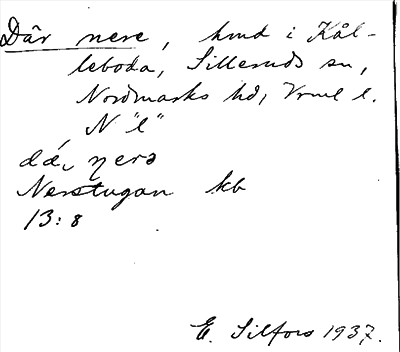 Där nere, hmd i Kål-
leboda, Silleruds sn,
Nordmarks hd, Vrml l.
N "l"
dä́, nerə
Nerstugan kb
13:8
E. Silfors 1937.